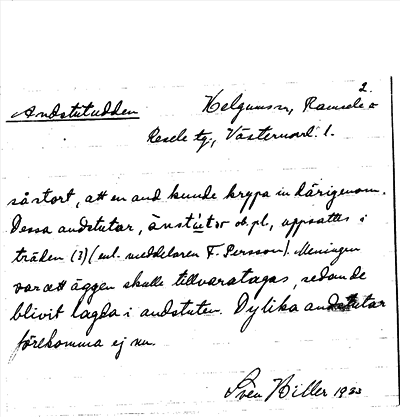 2.
Andstutudden
Helgumsn, Ramsele o
Resele tg, Västernorl. l.
så stort, att en and kunde krypa in därigenom.
Dessa andstutar, änstutor ob. pl., uppsattes i
träden (?) (enl. meddelaren F. Persson). Meningen
var att äggen skulle tillvaratagas, sedan de
blivit lagda i andstuten. Dylika andstutar
förekomma ej nu.
Sven Hiller 1933